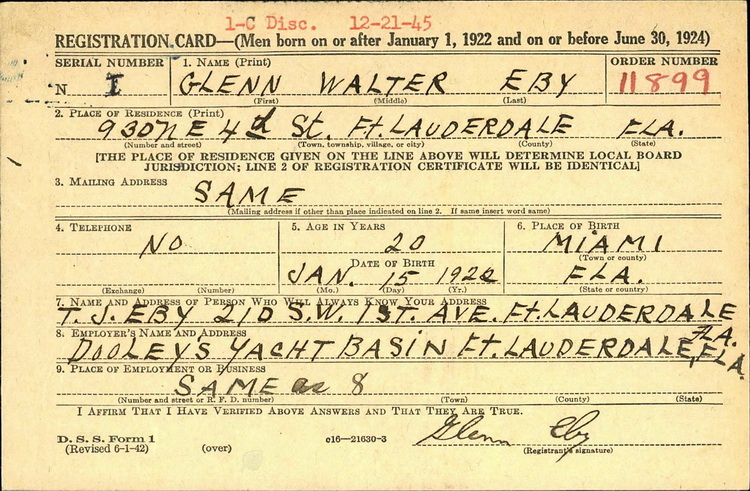 1-C Disc. 12-21-45
REGISTRATION CARD—(Men born on or after January 1, 1922 and on or before June 30, 1924)
SERIAL NUMBER 1. NAME (Print) ORDER NUMBER
N I GLENN WALTER EBY 11899
(First) (Middle) (Last)
2. PLACE OF RESIDENCE (Print)
930 N E 4th St. Ft. LAUDERDALE FLA.
(Number and street) (Town, township, village, or city) (County) (State)
[THE PLACE OF RESIDENCE GIVEN ON THE LINE ABOVE WILL DETERMINE LOCAL BOARD
JURISDICTION; LINE 2 OF REGISTRATION CERTIFICATE WILL BE IDENTICAL]
3. MAILING ADDRESS
SAME
(Mailing address if other than place indicated on line 2. If same insert word same)
4. TELEPHONE 5. AGE IN YEARS 6. PLACE OF BIRTH
NO 20 MIAMI
(Town or county)
DATE OF BIRTH
JAN. 15 1922 FLA.
(Exchange) (Number) (Mo.) (Day) (Yr.) (State or country)
7. NAME AND ADDRESS OF PERSON WHO WILL ALWAYS KNOW YOUR ADDRESS
T. J. EBY 210 S.W. 1ST. AVE. Ft. LAUDERDALE
FLA.
8. EMPLOYER'S NAME AND ADDRESS
DOOLEY'S YACHT BASIN Ft. LAUDERDALE, FLA.
9. PLACE OF EMPLOYMENT OR BUSINESS
SAME as 8
(Number and street or R. F. D. number) (Town) (County) (State)
I AFFIRM THAT I HAVE VERIFIED ABOVE ANSWERS AND THAT THEY ARE TRUE.
D. S. S. Form 1
(Revised 6-1-42) (over) c16—21630-3 Glenn Eby
(Registrant's signature)